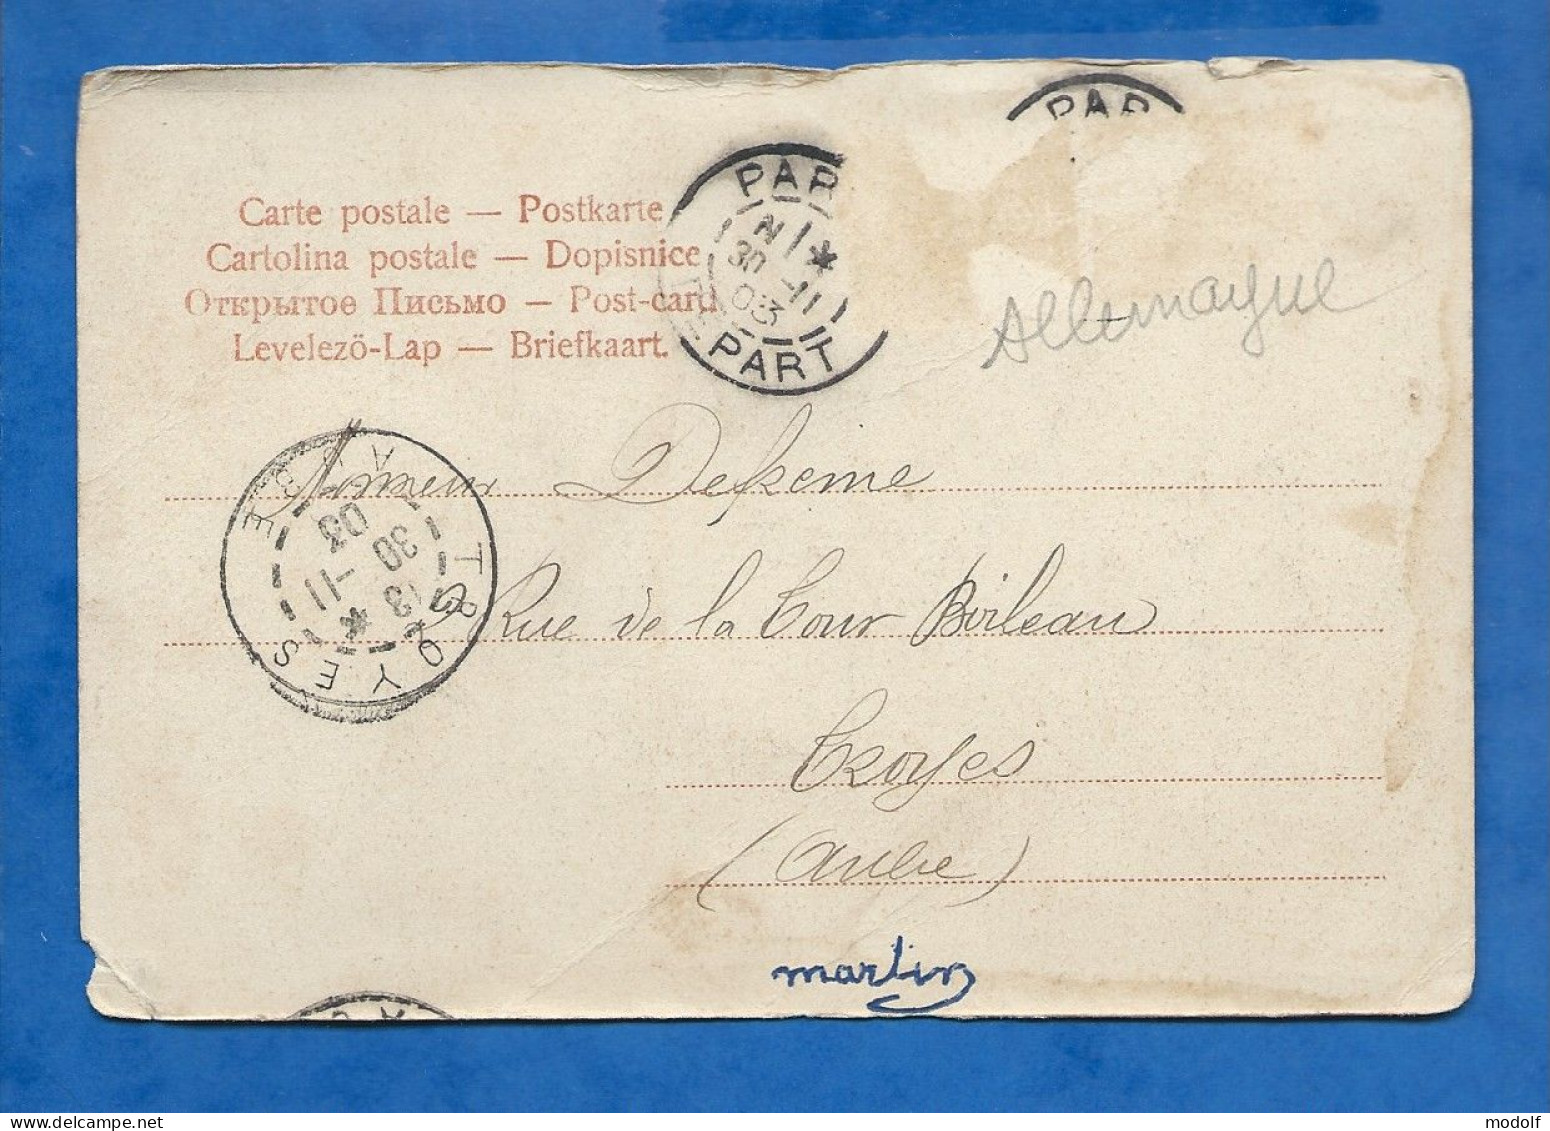 PAR
Carte postale — Postkarte
Cartolina postale — Dopisnice
Открытое Письмо — Post-card
Levelező-Lap — Briefkaart.
PAR
30 -11
03
PART
Allemagne
Monsieur
Rue de la Tour Boileau
Troyes
(Aube)
TROYES
AUBE
30 -11
03
martin
modolf